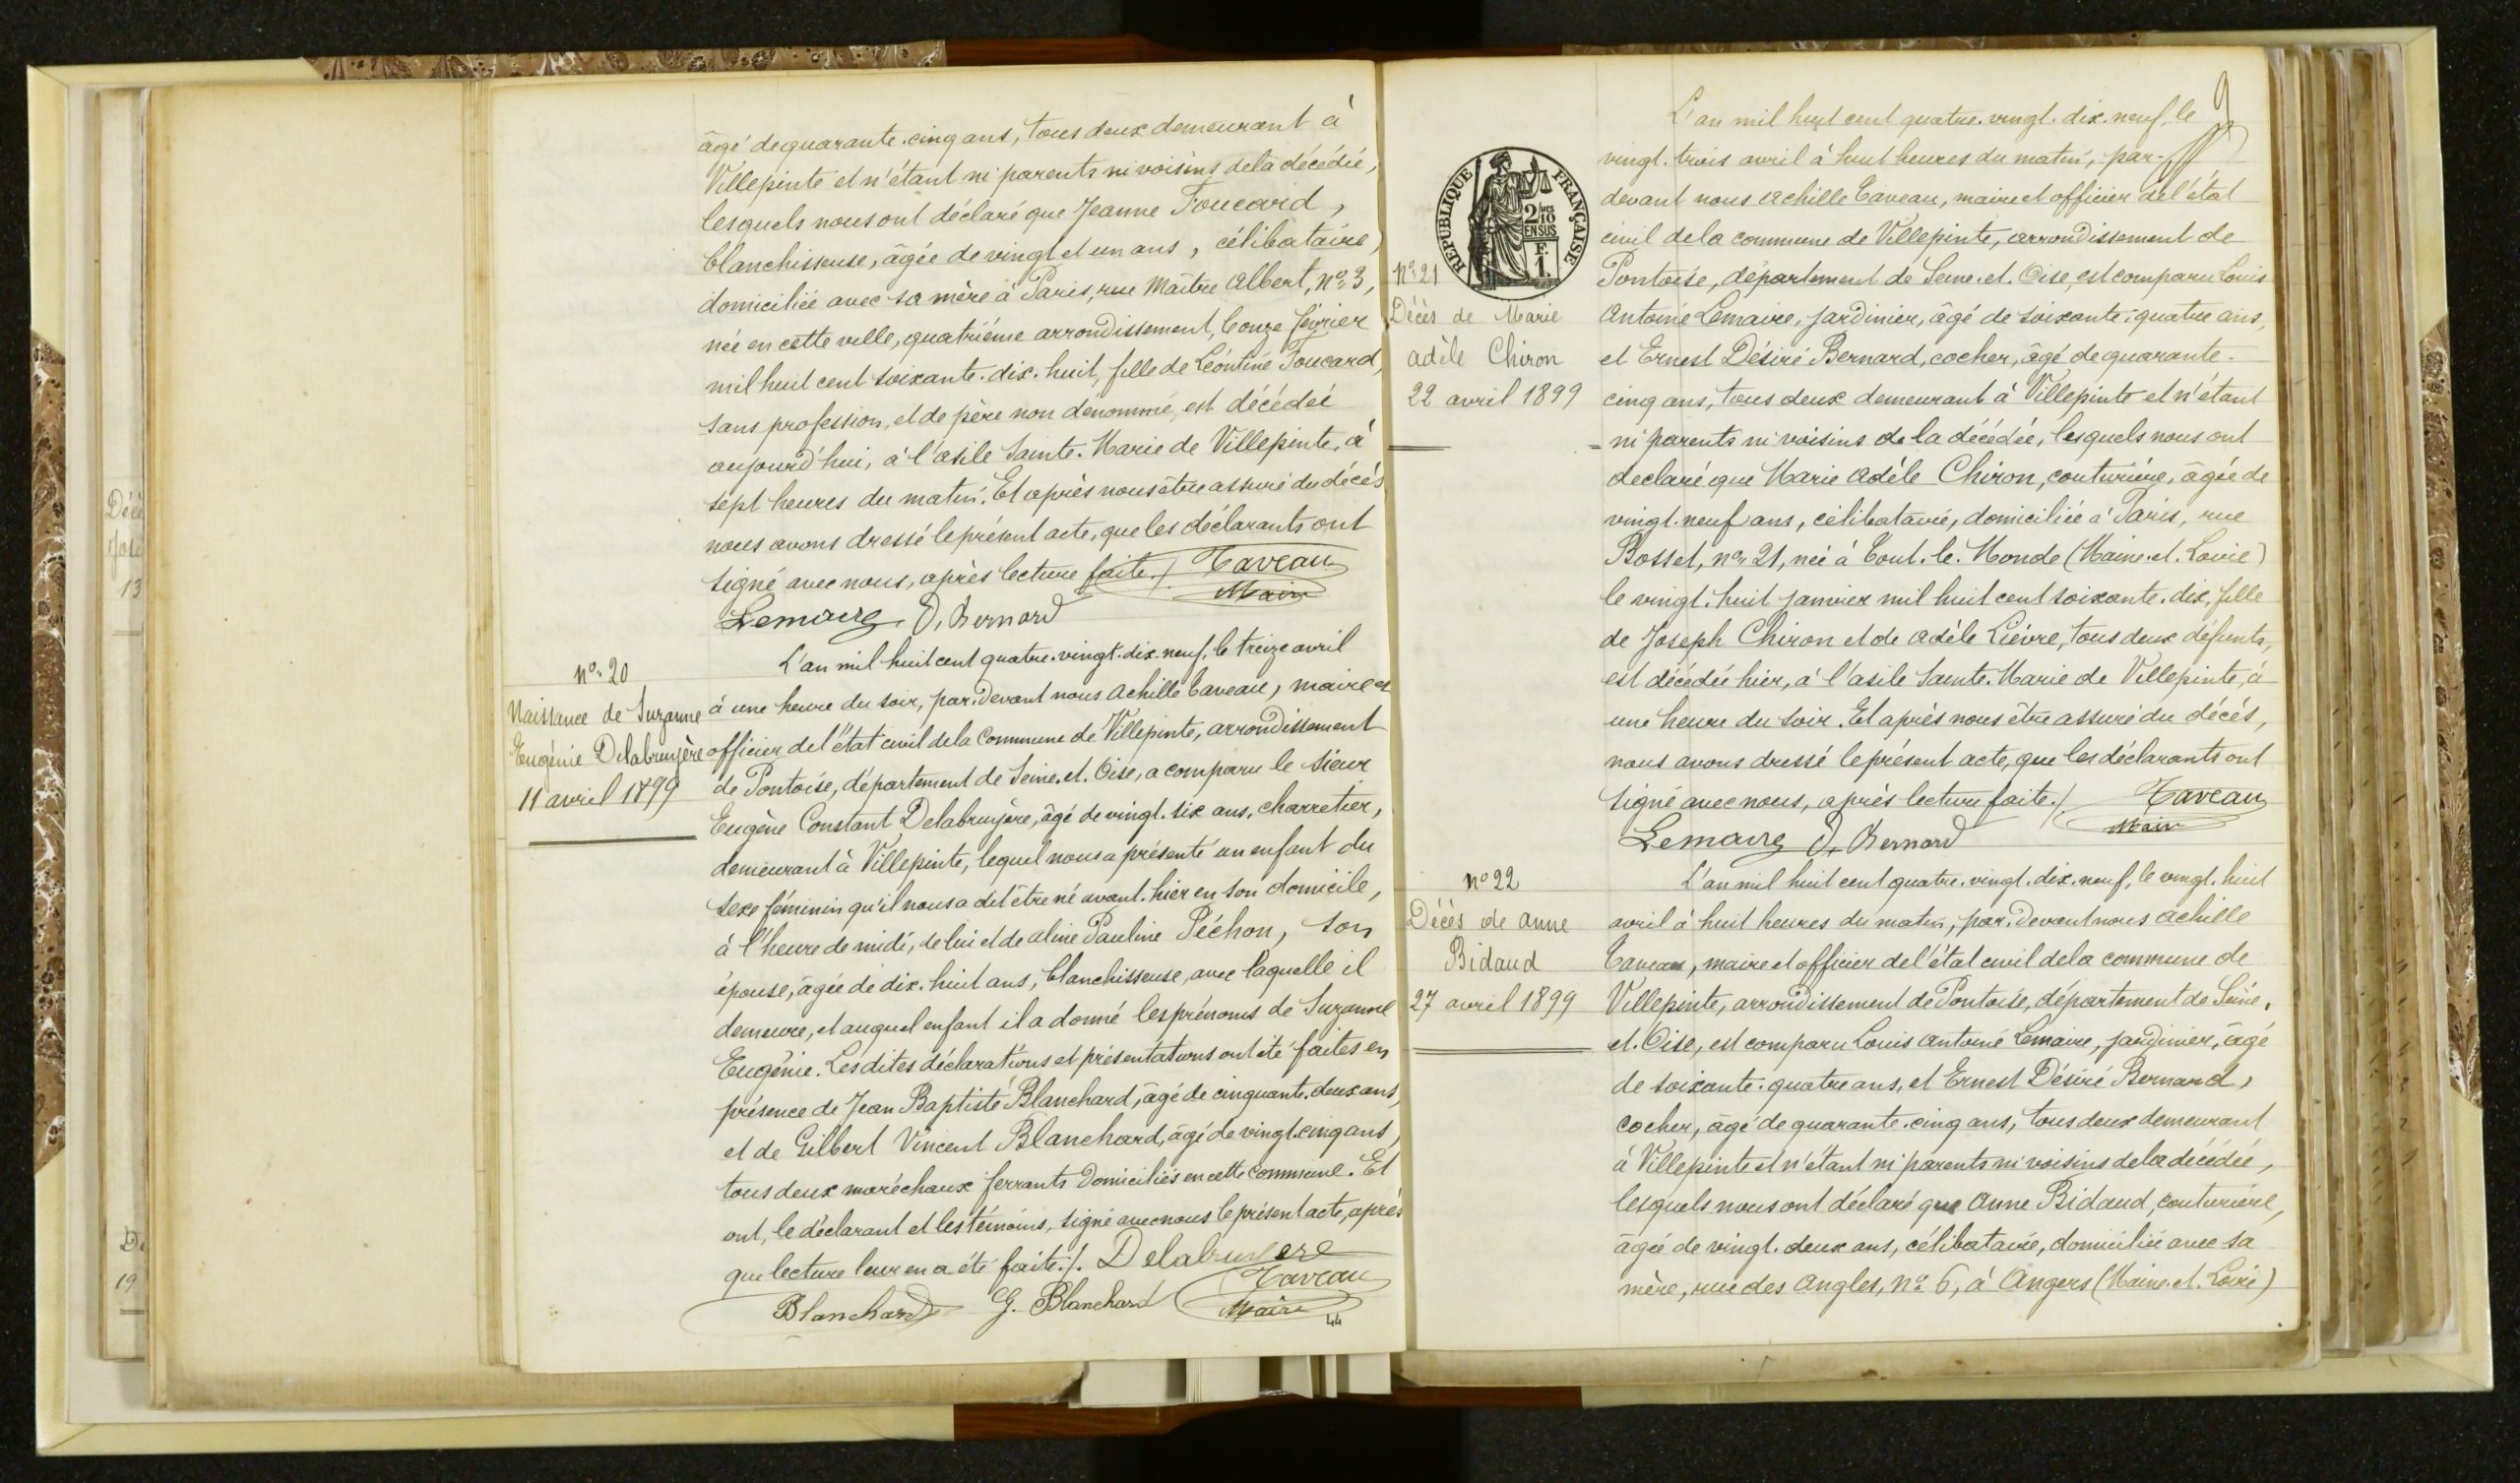 âgé de quarante-cinq ans, tous deux demeurant à
Villepinte et n'étant ni parents ni voisins de la décédée,
lesquels nous ont déclaré que Jeanne Foucard,
blanchisseuse, âgée de vingt et un ans, célibataire,
domiciliée avec sa mère à Paris, rue Maître Albert, N° 3,
née en cette ville, quatrième arrondissement, le onze février
mil huit cent soixante-dix-huit, fille de Léontine Foucard,
sans profession, et de père non dénommé, est décédée
aujourd'hui, à l'asile Sainte-Marie de Villepinte, à
sept heures du matin. Et après nous être assuré du décès
nous avons dressé le présent acte, que les déclarants ont
signé avec nous, après lecture faite./. Taveau
Maire
Lemaire D. Bernard
n° 20
Naissance de Suzanne
Eugénie Delabruyère
11 avril 1899
L'an mil huit cent quatre-vingt-dix-neuf, le treize avril
à une heure du soir, par-devant nous Achille Taveau, maire et
officier de l'état civil de la Commune de Villepinte, arrondissement
de Pontoise, département de Seine-et-Oise, a comparu le sieur
Eugène Constant Delabruyère, âgé de vingt-six ans, charretier,
demeurant à Villepinte, lequel nous a présenté un enfant du
sexe féminin qu'il nous a dit être né avant-hier en son domicile,
à l'heure de midi, de lui et de Aline Pauline Péchon, son
épouse, âgée de dix-huit ans, blanchisseuse, avec laquelle il
demeure, et auquel enfant il a donné les prénoms de Suzanne
Eugénie. Lesdites déclarations et présentations ont été faites en
présence de Jean Baptiste Blanchard, âgé de cinquante-deux ans,
et de Gilbert Vincent Blanchard, âgé de vingt-cinq ans,
tous deux maréchaux ferrants domiciliés en cette commune. Et
ont, le déclarant et les témoins, signé avec nous le présent acte, après
que lecture leur en a été faite./. Delabruyere
Taveau
Blanchard G. Blanchard Maire
44
9
REPUBLIQUE FRANÇAISE
2/10 EN SUS
F. 1.
N° 21
Décès de Marie
Adèle Chiron
22 avril 1899
L'an mil huit cent quatre-vingt-dix-neuf, le
vingt-trois avril à huit heures du matin, par-
devant nous Achille Taveau, maire et officier de l'état
civil de la commune de Villepinte, arrondissement de
Pontoise, département de Seine-et-Oise, est comparu Louis
Antoine Lemaire, jardinier, âgé de soixante-quatre ans,
et Ernest Désiré Bernard, cocher, âgé de quarante-
cinq ans, tous deux demeurant à Villepinte et n'étant
ni parents ni voisins de la décédée, lesquels nous ont
declaré que Marie Adèle Chiron, couturière, âgée de
vingt-neuf ans, célibataire, domiciliée à Paris, rue
Bosset, n° 21, née à Tout-le-Monde (Maine-et-Loire)
le vingt-huit janvier mil huit cent soixante-dix, fille
de Joseph Chiron et de Adèle Lièvre, tous deux défunts,
est décédée hier, à l'asile Sainte-Marie de Villepinte, à
une heure du soir. Et après nous être assuré du décès,
nous avons dressé le présent acte, que les déclarants ont
signé avec nous, après lecture faite./. Taveau
Maire
Lemaire D. Bernard
n° 22
Décès de Anne
Bidaud
27 avril 1899
L'an mil huit cent quatre-vingt-dix-neuf, le vingt-huit
avril à huit heures du matin, par-devant nous Achille
Taveau, maire et officier de l'état civil de la commune de
Villepinte, arrondissement de Pontoise, département de Seine-
et-Oise, est comparu Louis Antoine Lemaire, jardinier, âgé
de soixante-quatre ans, et Ernest Désiré Bernard,
cocher, âgé de quarante-cinq ans, tous deux demeurant
à Villepinte et n'étant ni parents ni voisins de la décédée,
lesquels nous ont déclaré que Anne Bidaud, couturière,
âgée de vingt-deux ans, célibataire, domiciliée avec sa
mère, rue des Angles, N° 6, à Angers (Maine-et-Loire)